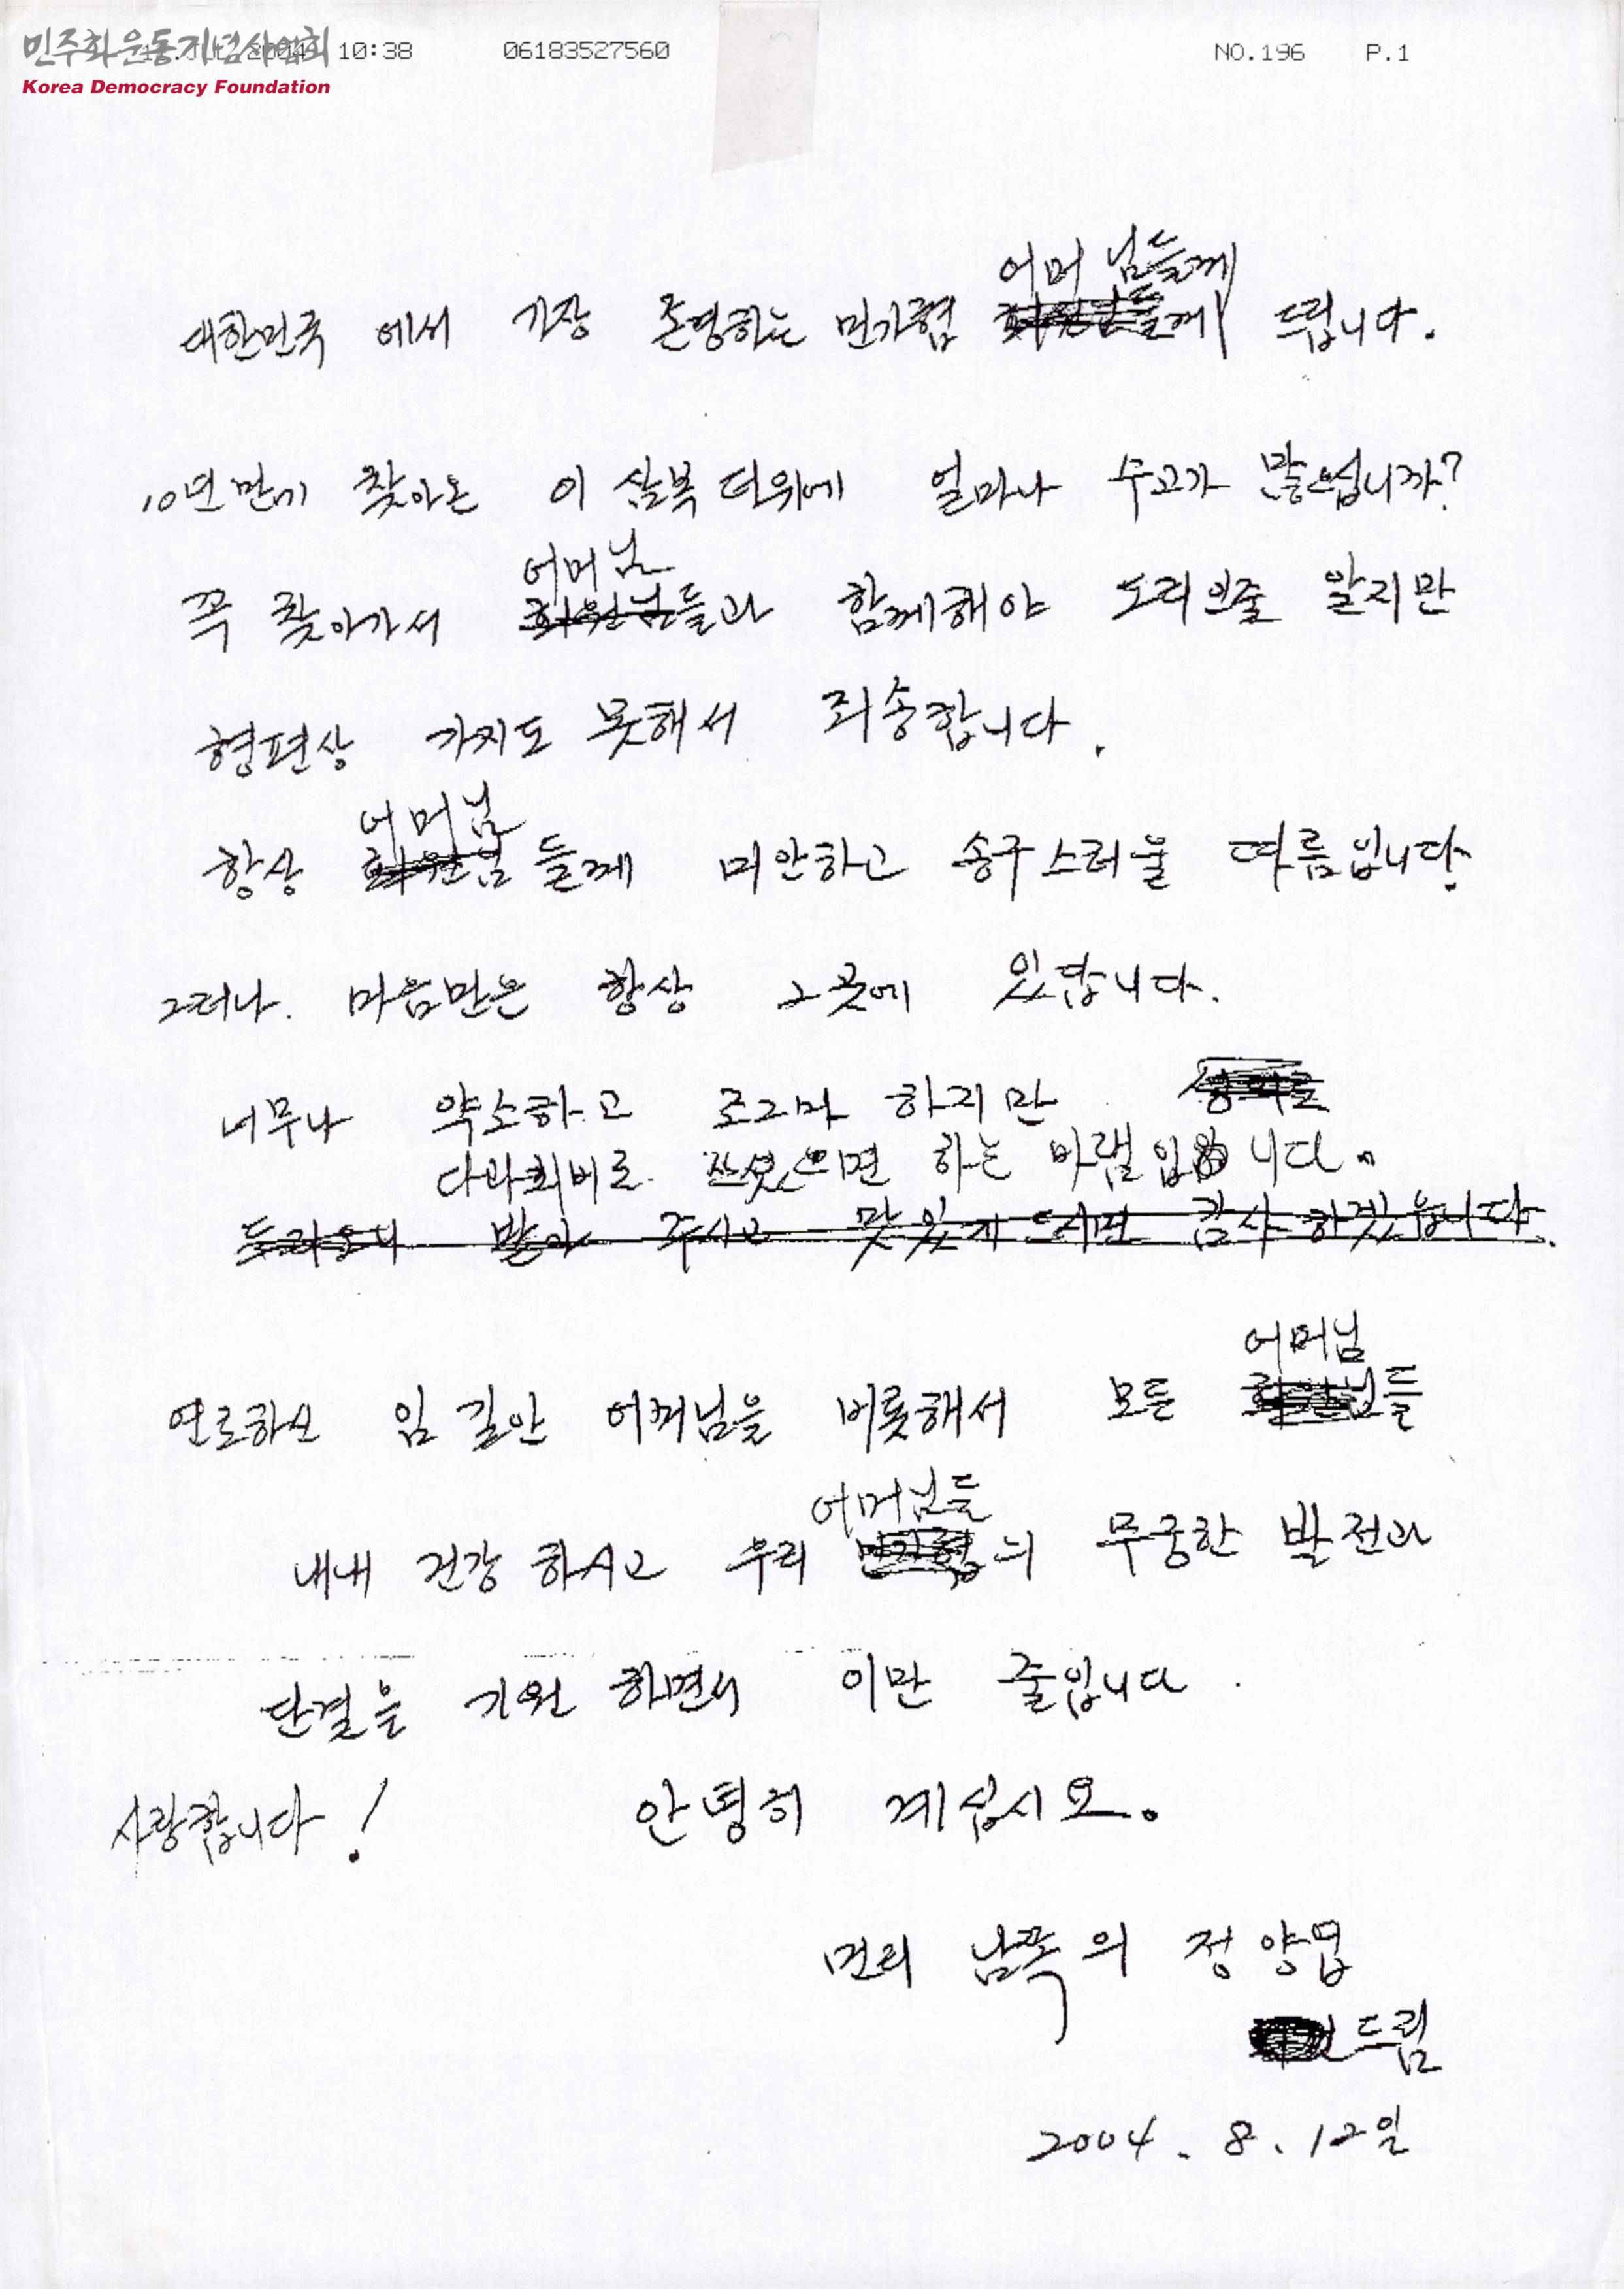 민주화운동기념사업회 10:38 06183527560 NO.196 P.1
Korea Democracy Foundation
어머님들께
대한민국 에서 가장 존경하는 민가협 드립니다.
10년만에 찾아온 이 삼복 더위에 얼마나 수고가 많으십니까?
어머님
꼭 찾아가서 회원님들과 함께해야 도리인줄 알지만
형편상 가지도 못해서 죄송합니다.
어머님
항상 회원님 들께 미안하고 송구스러울 따름입니다.
그러나. 마음만은 항상 그곳에 있답니다.
너무나 약소하고 조그마 하지만
다과회비로 쓰셨으면 하는 바램입니다.
드리오니 받아 주시고 맛있게 드시면 감사하겠읍니다.
어머님
연로하신 임 길안 어머님을 비롯해서 모든 들
어머님들
내내 건강 하시고 우리 민가협의 무궁한 발전과
단결을 기원 하면서 이만 줄입니다.
사랑합니다! 안녕히 계십시오.
멀리 남쪽의 정양엽
드림
2004. 8. 12일